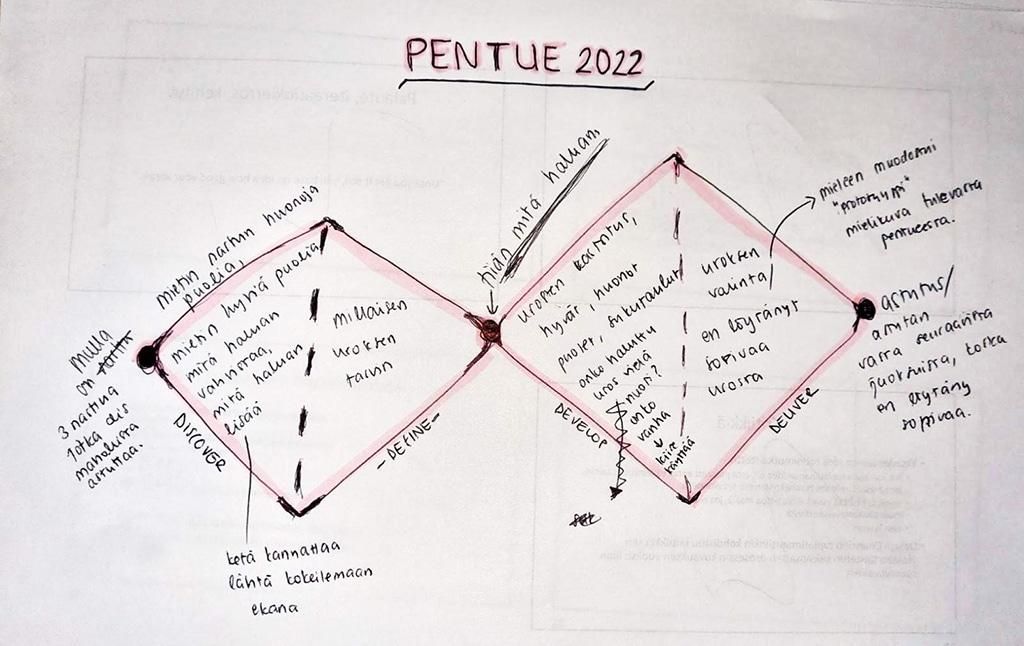 PENTUE 2022
mulla
on
3 narttua
jotka olis
mahdollista
astuttaa.
mietin nartun huonoja
puolia,
mietin hyviä puolia
mitä haluan
vahvistaa,
mitä haluan
lisää
DISCOVER
ketä kannattaa
lähtä kokeilemaan
ekana
millaisen
uroksen
tarvin
-DEFINE-
tiiän mitä haluan.
urosten kartoitus,
hyvät, huonot
puolet, sukutaulut
onko haluttu
uros vielä
nuori?
onko
vanha
kiire
käyttää
DEVELOP
uroksen
valinta/
en löytänyt
sopivaa
urosta
DELIVER
mieleen muodostui
"prototyyppi"
mielikuva tulevasta
pentueesta.
astutus/
astutan
vasta seuraavista
juoksuista, koska
en löytäny
sopivaa.